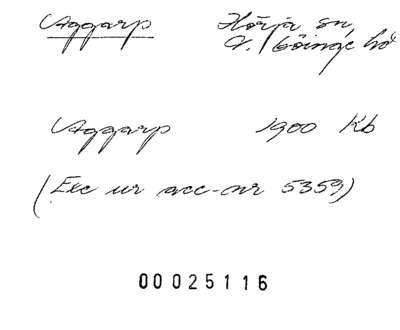 Aggarp Hörja sn,
V. Göinge hd
Aggarp 1900 Kb
(Exc ur acc-nr 5359)
00025116